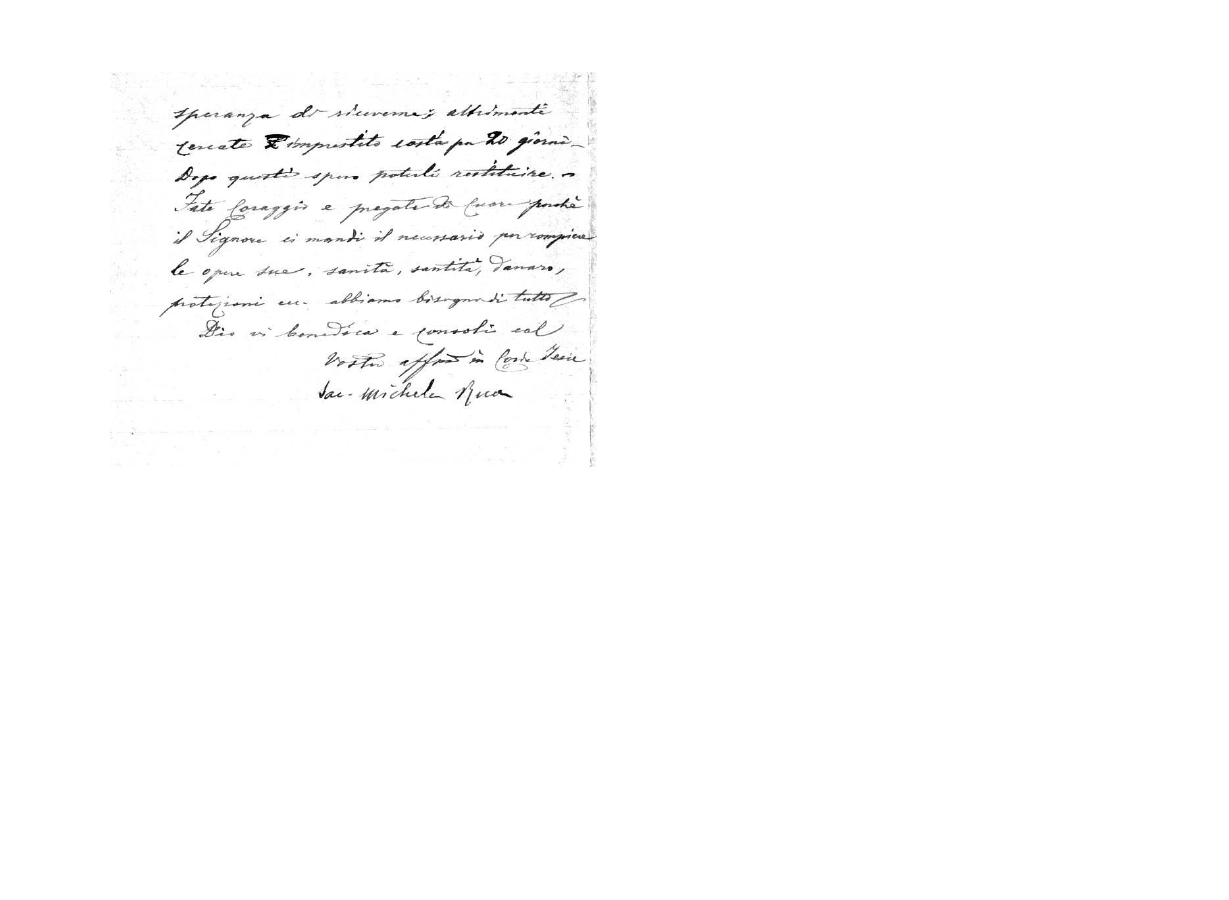 speranza di riceverne; altrimenti
cercate imprestito costà per 20 giorni_
Dopo questi spero poterli restituire. _
Fate Coraggio e pregate di Cuore perchè
il Signore ci mandi il necessario per compiere
le opere sue, sanità, santità, danaro,
protezioni ecc. abbiamo bisogno di tutto
Dio vi benedica e consoli col
Vostro affmo in Corde Jesu
Sac. Michele Rua